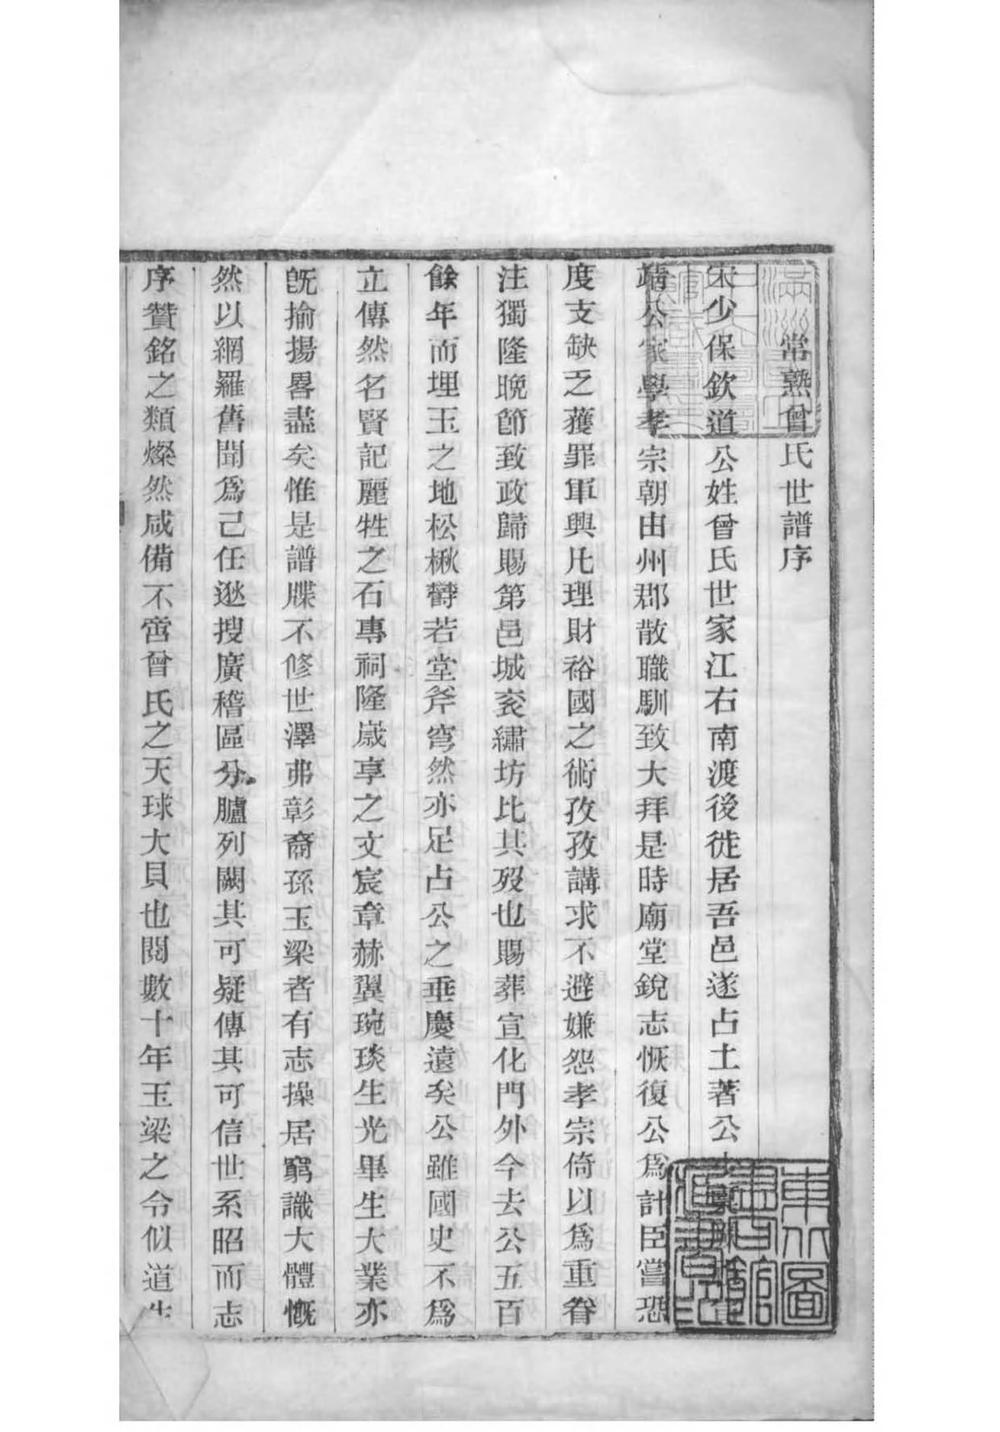 常熟曾氏世譜序
宋少保欽道公姓曾氏世家江右南渡後徙居吾邑遂占土著公
靖公家學孝宗朝由州郡散職馴致大拜是時廟堂銳志恢復公爲計臣嘗恐
度支缺乏獲罪軍興凡理財裕國之術孜孜講求不避嫌怨孝宗倚以爲重眷
注獨隆晚節致政歸賜第邑城衮繡坊比其歿也賜葬宣化門外今去公五百
餘年而埋玉之地松楸欝若堂斧穹然亦足占公之垂慶遠矣公雖國史不爲
立傳然名賢記麗牲之石專祠隆歲享之文宸章赫翼琬琰生光畢生大業亦
旣揄揚畧盡矣惟是譜牒不修世澤弗彰裔孫玉梁者有志操居窮識大體慨
然以網羅舊聞爲己任逖搜廣稽區分臚列闕其可疑傳其可信世系昭而志
序贊銘之類燦然咸備不啻曾氏之天球大貝也閱數十年玉梁之令似道生
東北圖
書館